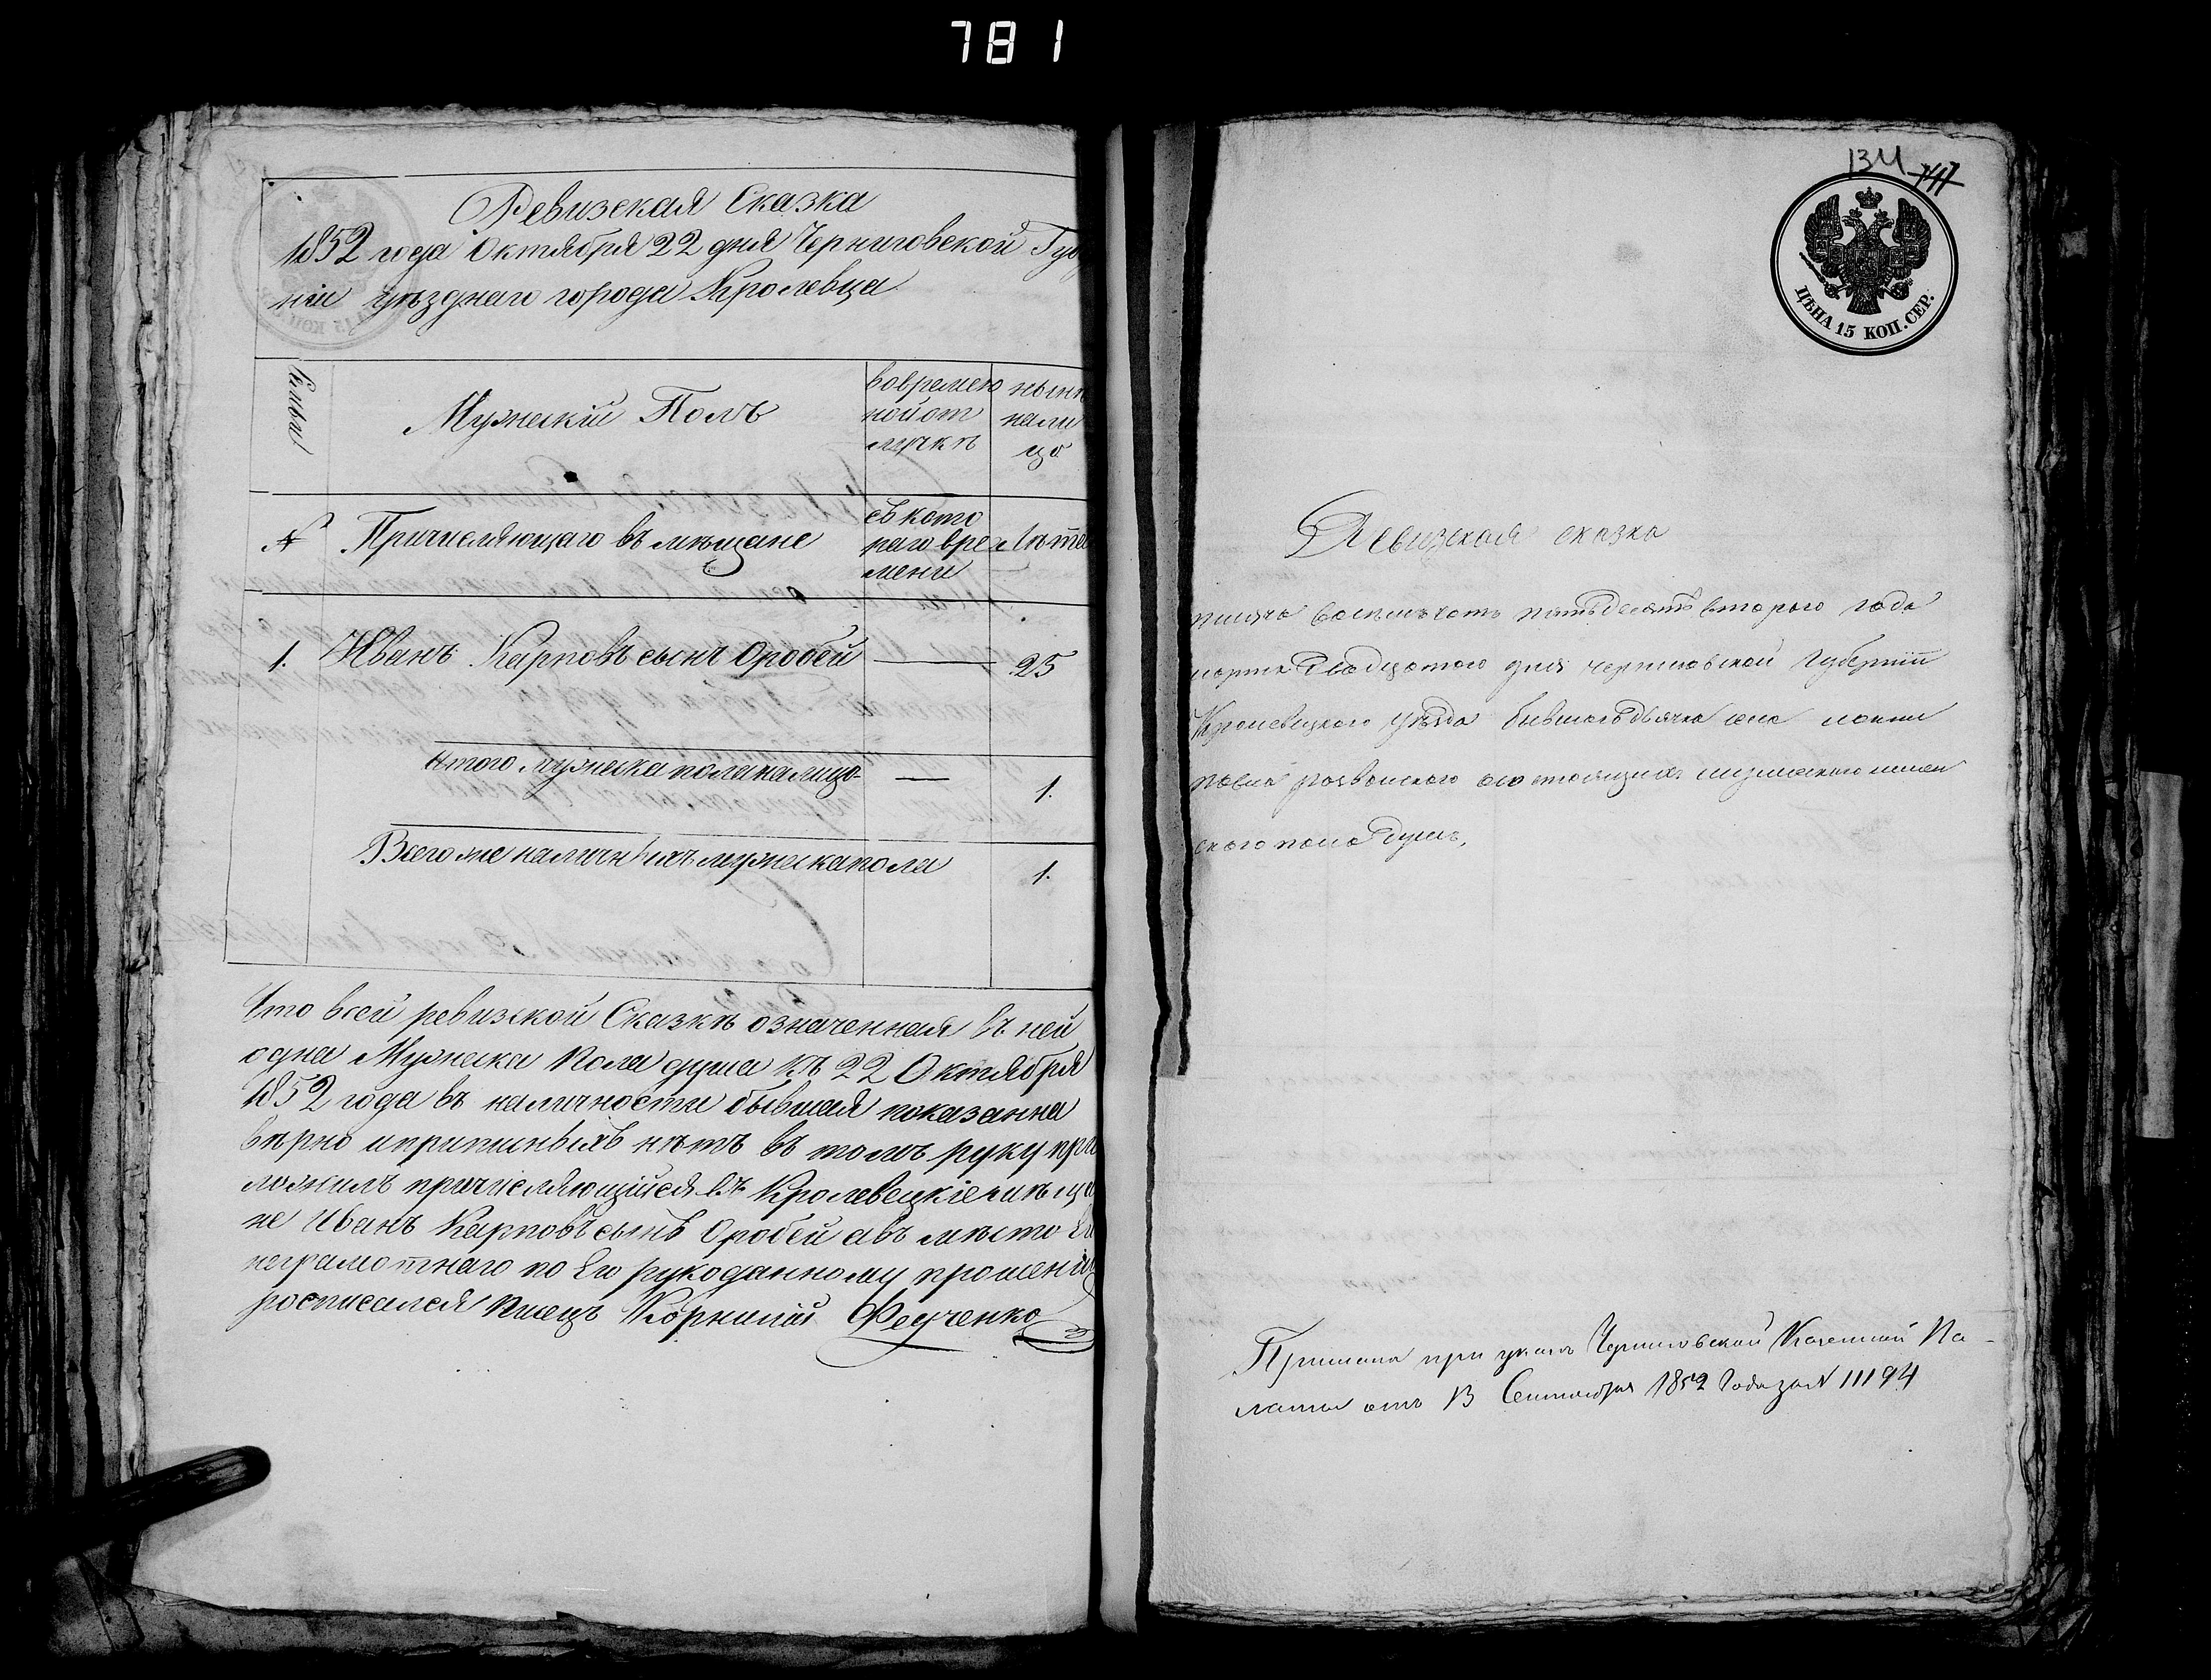 781
Ревизская Сказка
1852 года Октября 22 дня Черниговской Губ
нiи уѣзднаго города Кролевца
Семьи
Мужескiй Полъ
вовремен
ной от
лучкѣ
нынѣ
нали
цо
№
Причисляющаго въ мѣщане
съ кото
раго вре
мени
Лѣта
1. Иванъ Карповъ сынъ Оробей — 25
Итого мужеска пола налицо — 1.
Всего же наличныхъ мужеска пола 1.
Что всей ревизской Сказкѣ означенная въ ней
одна Мужеска Пола душа къ 22 Октября
1852 года въ наличности бывшая показанна
вѣрно иприписныхъ нѣтъ въ томъ руку при
ложилъ причисляющiйся въ Кролевецкiе мѣща
не Иванъ Карповъ сынъ Оробей авъ мѣсто Ег
неграмотнаго по Его рукоданному прошенiю
росписался Писецъ Корнилiй Федченко
134
747
ЦѢНА 15 КОП. СЕР.
Ревизская сказка
тисяча восемъсотъ пятьдесятъ второго года
марта двадцатого дня черниговской Губернiи
Кролевецкого уѣзда бившого дьячка
состоящихъ
ского пола душъ,
Прислана при указѣ Черниговской Казенной Па-
латы отъ 13 Сентября 1852 года за № 11194